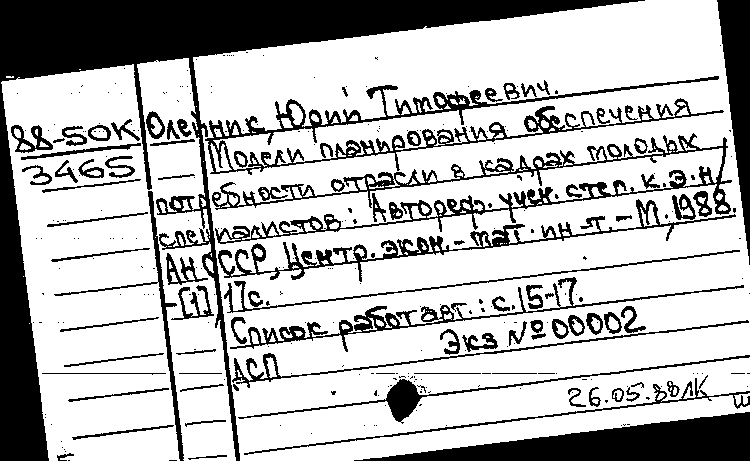 88-50К Олейник, Юрий Тимофеевич.
3465 Модели планирования обеспечения
потребности отрасли в кадрах молодых
специалистов: Автореф. учен. степ. к.э.н/
АН СССР, Центр. экон.-мат. ин-т.-М., 1988.
-[1], 17с.
Список работ авт.: с.15-17.
ДСП Экз №00002
26.05.88 ЛК